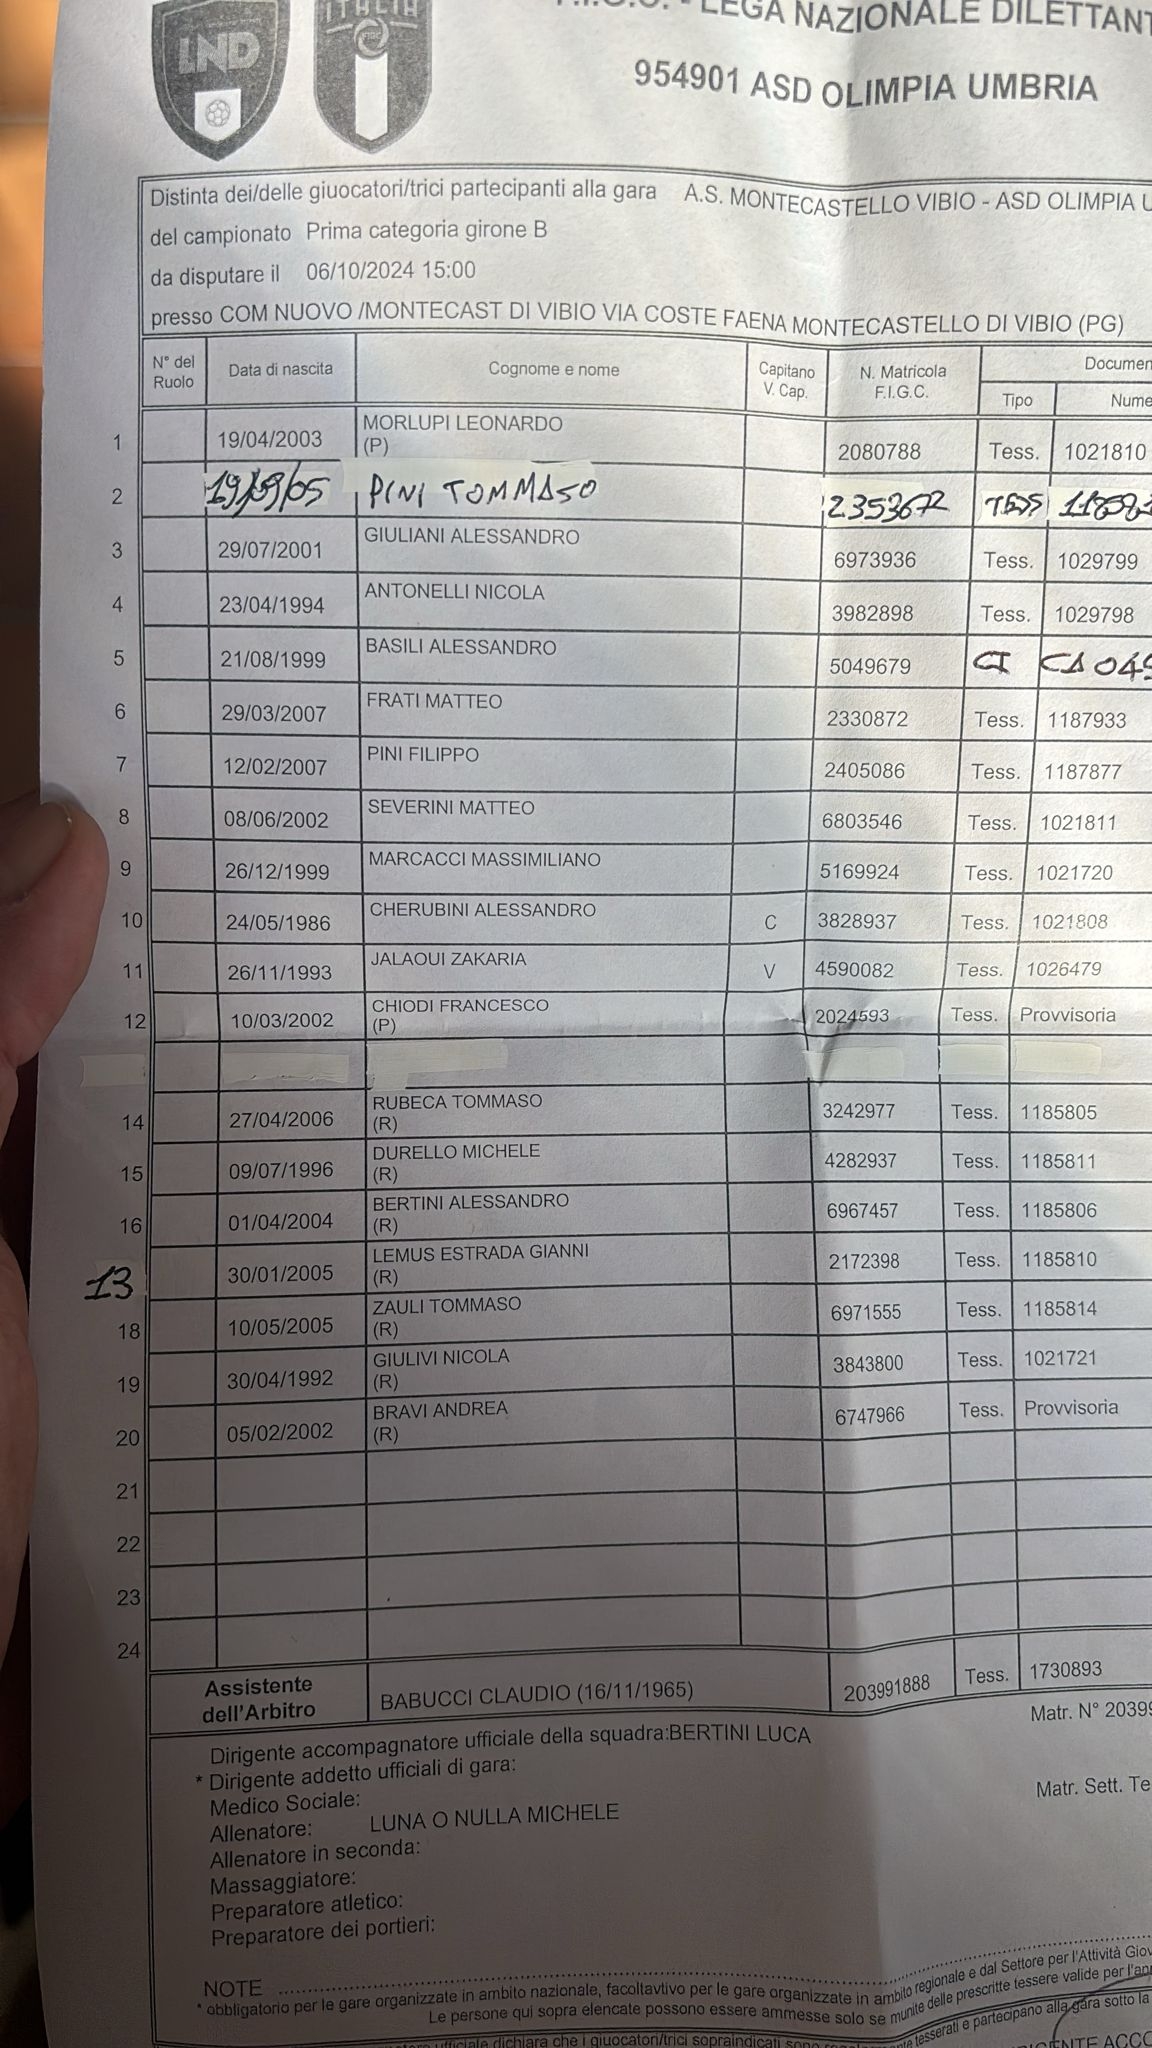 LND
ITALIA
FIGC
LEGA NAZIONALE DILETTANT
954901 ASD OLIMPIA UMBRIA
Distinta dei/delle giuocatori/trici partecipanti alla gara A.S. MONTECASTELLO VIBIO - ASD OLIMPIA U
del campionato Prima categoria girone B
da disputare il 06/10/2024 15:00
presso COM NUOVO /MONTECAST DI VIBIO VIA COSTE FAENA MONTECASTELLO DI VIBIO (PG)
N° del Ruolo Data di nascita Cognome e nome Capitano V. Cap. N. Matricola F.I.G.C. Documen
Tipo Nume
1 19/04/2003 MORLUPI LEONARDO (P) 2080788 Tess. 1021810
2 19/09/05 PINI TOMMASO 2353672 TESS
3 29/07/2001 GIULIANI ALESSANDRO 6973936 Tess. 1029799
4 23/04/1994 ANTONELLI NICOLA 3982898 Tess. 1029798
5 21/08/1999 BASILI ALESSANDRO 5049679 CI CA 04
6 29/03/2007 FRATI MATTEO 2330872 Tess. 1187933
7 12/02/2007 PINI FILIPPO 2405086 Tess. 1187877
8 08/06/2002 SEVERINI MATTEO 6803546 Tess. 1021811
9 26/12/1999 MARCACCI MASSIMILIANO 5169924 Tess. 1021720
10 24/05/1986 CHERUBINI ALESSANDRO C 3828937 Tess. 1021808
11 26/11/1993 JALAOUI ZAKARIA V 4590082 Tess. 1026479
12 10/03/2002 CHIODI FRANCESCO (P) 2024593 Tess. Provvisoria
14 27/04/2006 RUBECA TOMMASO (R) 3242977 Tess. 1185805
15 09/07/1996 DURELLO MICHELE (R) 4282937 Tess. 1185811
16 01/04/2004 BERTINI ALESSANDRO (R) 6967457 Tess. 1185806
13 30/01/2005 LEMUS ESTRADA GIANNI (R) 2172398 Tess. 1185810
18 10/05/2005 ZAULI TOMMASO (R) 6971555 Tess. 1185814
19 30/04/1992 GIULIVI NICOLA (R) 3843800 Tess. 1021721
20 05/02/2002 BRAVI ANDREA (R) 6747966 Tess. Provvisoria
21
22
23
24
Assistente dell'Arbitro BABUCCI CLAUDIO (16/11/1965) 203991888 Tess. 1730893
Matr. N° 20399
Dirigente accompagnatore ufficiale della squadra:BERTINI LUCA
* Dirigente addetto ufficiali di gara:
Medico Sociale: Matr. Sett. Te
Allenatore: LUNA O NULLA MICHELE
Allenatore in seconda:
Massaggiatore:
Preparatore atletico:
Preparatore dei portieri:
NOTE
* obbligatorio per le gare organizzate in ambito nazionale, facoltavtivo per le gare organizzate in ambito regionale e dal Settore per l'Attività Giov
Le persone qui sopra elencate possono essere ammesse solo se munite delle prescritte tessere valide per l'an
ufficiale dichiara che i giuocatori/trici sopraindicati sono tesserati e partecipano alla gara sotto la